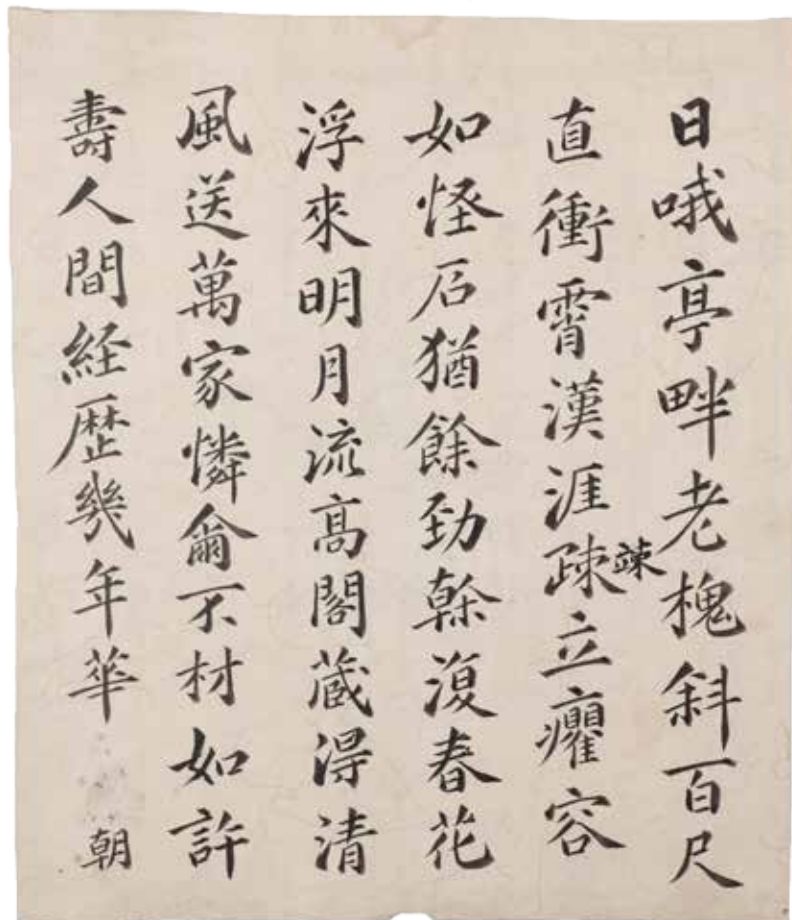 日哦亭畔老槐斜百尺
直衝霄漢涯疎立癯容
竦
如怪石猶餘勁幹復春花
浮來明月流高閣蔵得清
風送萬家憐爾不材如許
壽人間経歴幾年華
朝